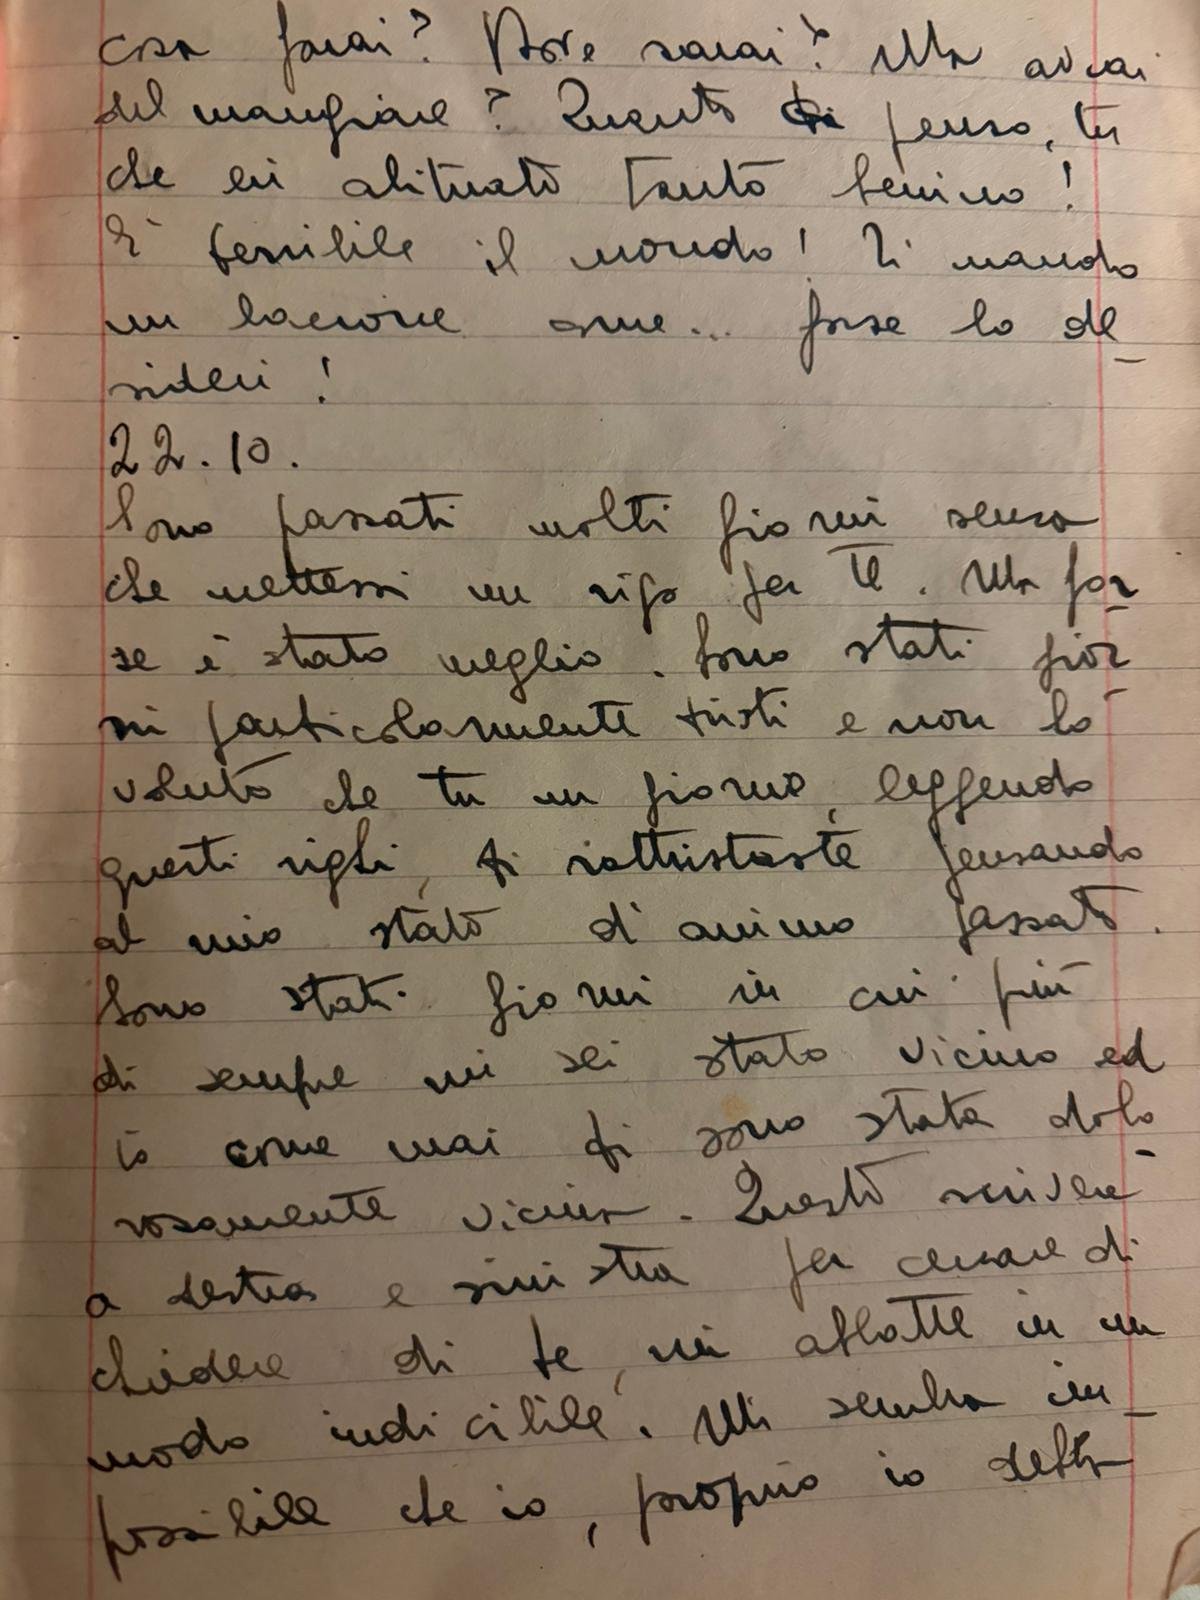 cosa farai? Dove sarai? Ma avrai
del mangiare? Quanto ti penso, tu
che eri abituato tanto benino!
E' terribile il mondo! Ti mando
un bacione come... forse lo de_
sideri!
22.10.
Sono passati molti giorni senza
che mettessi un rigo per te. Ma for_
se è stato meglio. Sono stati gior_
ni particolarmente tristi e non ho
voluto che tu un giorno, leggendo
questi righi, ti rattristaste pensando
al mio stato d'animo passato.
Sono stati giorni in cui più
di sempre mi sei stato vicino ed
io come mai ti sono stata dolo_
rosamente vicina. Questo scrivere
a destra e sinistra per cercare di
chiedere di te, mi abbatte in un
modo indicibile. Mi sembra im_
possibile che io, proprio io debba